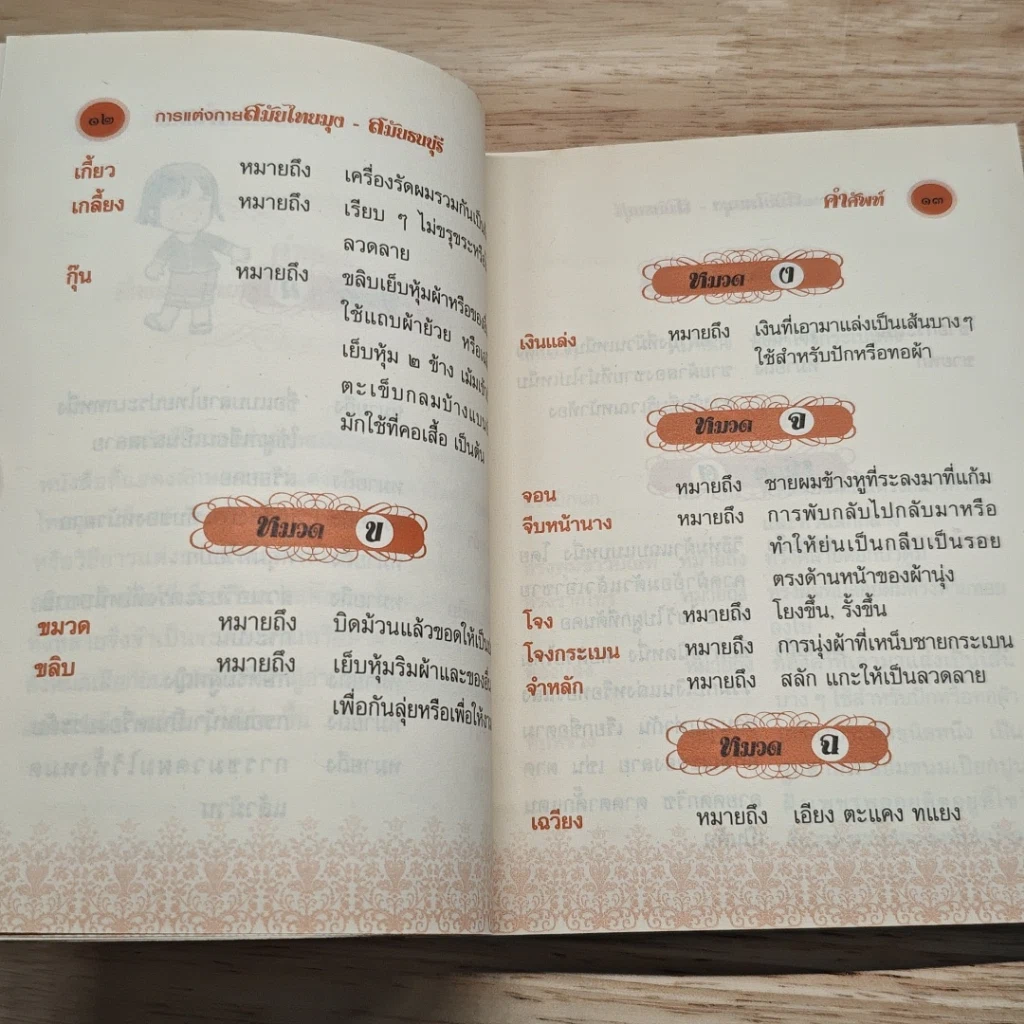 ๑๒ การแต่งกายสมัยไทยมุง - สมัยธนบุรี
เกี้ยว หมายถึง เครื่องรัดผมรวมกันเป็น
เกลี้ยง หมายถึง เรียบ ๆ ไม่ขรุขระหรือ
ลวดลาย
กุ๊น หมายถึง ขลิบเย็บหุ้มผ้าหรือของอื่น
ใช้แถบผ้าย้วย หรือ
เย็บหุ้ม ๒ ข้าง เม้มเข้า
ตะเข็บกลมบ้างแบน
มักใช้ที่คอเสื้อ เป็นต้น
หมวด ข
ขมวด หมายถึง บิดม้วนแล้วขอดให้เป็น
ขลิบ หมายถึง เย็บหุ้มริมผ้าและของอื่น
เพื่อกันลุ่ยหรือเพื่อให้
คำศัพท์ ๑๓
หมวด ง
เงินแล่ง หมายถึง เงินที่เอามาแล่งเป็นเส้นบางๆ
ใช้สำหรับปักหรือทอผ้า
หมวด จ
จอน หมายถึง ชายผมข้างหูที่ระลงมาที่แก้ม
จีบหน้านาง หมายถึง การพับกลับไปกลับมาหรือ
ทำให้ย่นเป็นกลีบเป็นรอย
ตรงด้านหน้าของผ้านุ่ง
โจง หมายถึง โยงขึ้น, รั้งขึ้น
โจงกระเบน หมายถึง การนุ่งผ้าที่เหน็บชายกระเบน
จำหลัก หมายถึง สลัก แกะให้เป็นลวดลาย
หมวด ฉ
เฉวียง หมายถึง เอียง ตะแคง ทแยง